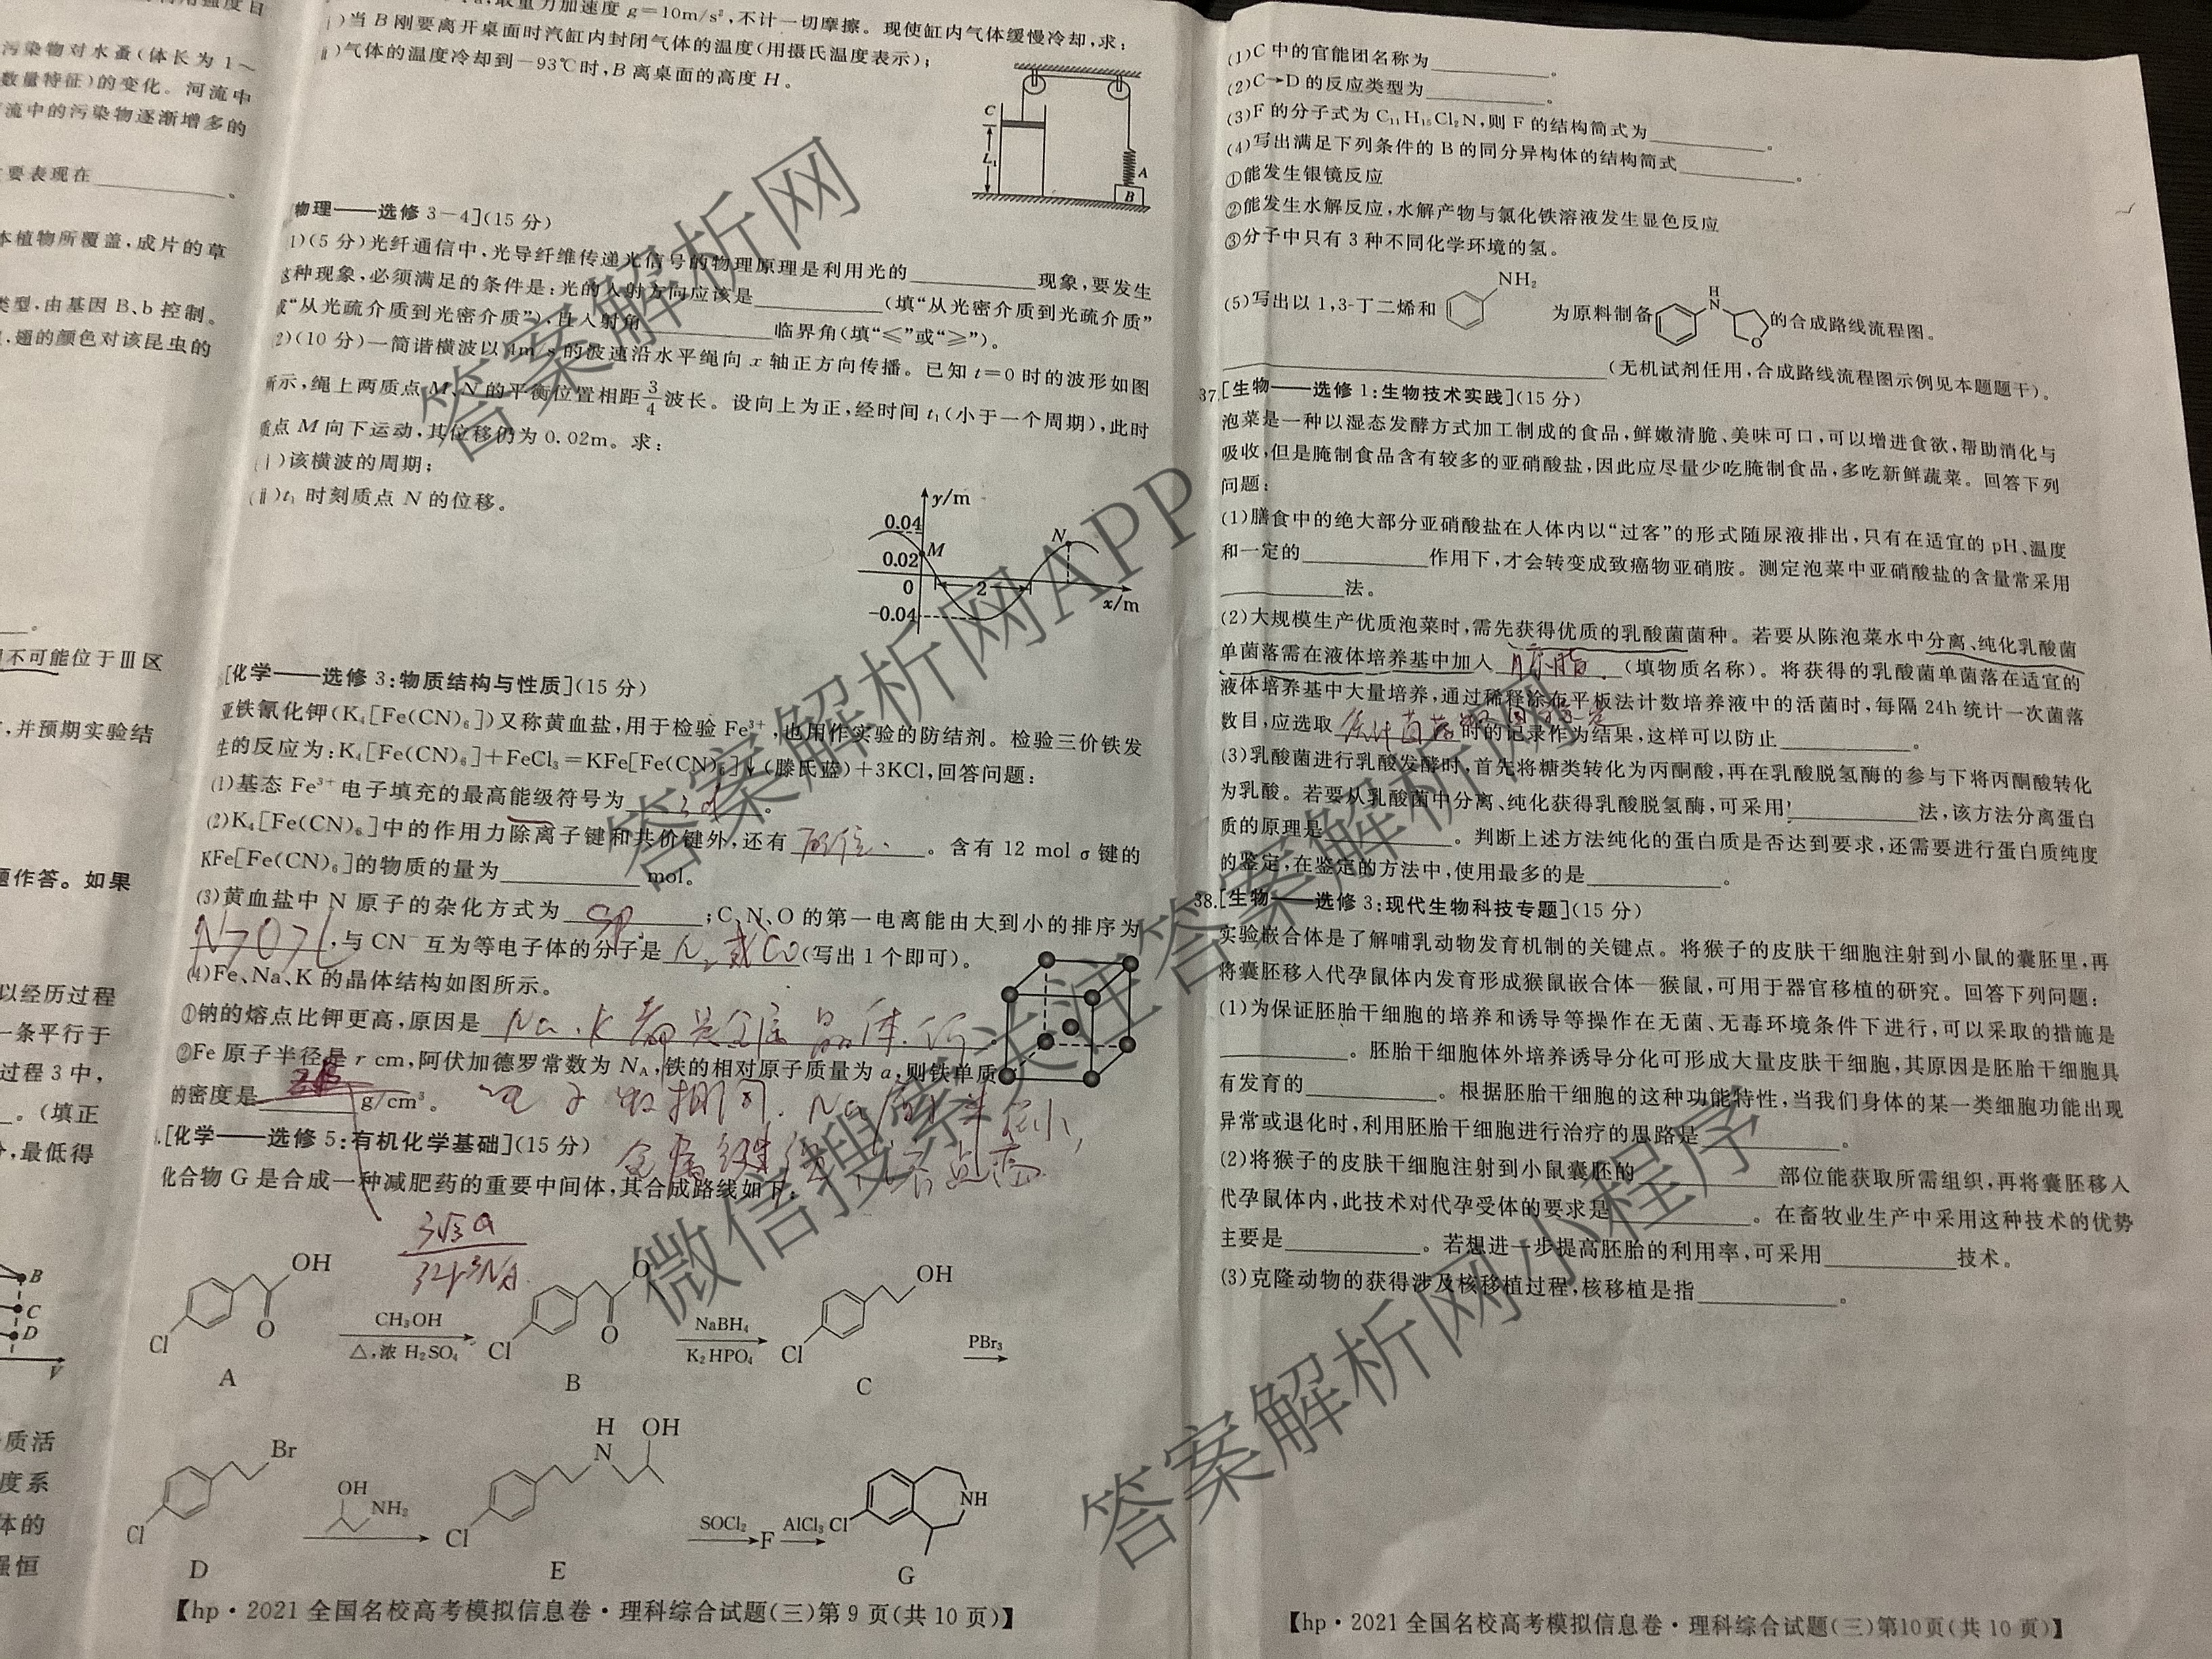 污染物对水蚤(体长为 1～
数量特征)的变化。河流中
流中的污染物逐渐增多的
要表现在________。
本植物所覆盖,成片的草
类型,由基因 B、b 控制。
,翅的颜色对该昆虫的
不可能位于Ⅲ区
,并预期实验结
题作答。如果
以经历过程
一条平行于
过程 3 中,
。(填正
,最低得
B
C
D
V
质活
度系
体的
强恒
,重力加速度 g=10m/s²,不计一切摩擦。现使缸内气体缓慢冷却,求:
(ⅰ)当 B 刚要离开桌面时汽缸内封闭气体的温度(用摄氏温度表示);
(ⅱ)气体的温度冷却到－93℃时,B 离桌面的高度 H。
C
L₁
A
B
[物理——选修 3－4](15 分)
(1)(5 分)光纤通信中,光导纤维传递光信号的物理原理是利用光的________现象,要发生
这种现象,必须满足的条件是:光的入射方向应该是________(填“从光密介质到光疏介质”
或“从光疏介质到光密介质”),且入射角________临界角(填“≤”或“≥”)。
(2)(10 分)一简谐横波以 1m/s 的波速沿水平绳向 x 轴正方向传播。已知 t＝0 时的波形如图
所示,绳上两质点 M、N 的平衡位置相距3/4波长。设向上为正,经时间 t₁(小于一个周期),此时
质点 M 向下运动,其位移仍为 0.02m。求:
(ⅰ)该横波的周期;
(ⅱ)t₁ 时刻质点 N 的位移。
y/m
0.04
M
N
0.02
0
2
x/m
-0.04
[化学——选修 3:物质结构与性质](15 分)
亚铁氰化钾(K₄[Fe(CN)₆])又称黄血盐,用于检验 Fe³⁺,也用作实验的防结剂。检验三价铁发
生的反应为:K₄[Fe(CN)₆]＋FeCl₃＝KFe[Fe(CN)₆]↓(滕氏蓝)＋3KCl,回答问题:
(1)基态 Fe³⁺电子填充的最高能级符号为 3d 。
(2)K₄[Fe(CN)₆]中的作用力除离子键和共价键外,还有 配位 。含有 12 mol σ 键的
KFe[Fe(CN)₆]的物质的量为________ mol。
(3)黄血盐中 N 原子的杂化方式为 sp ;C、N、O 的第一电离能由大到小的排序为
N>O>C ,与 CN⁻互为等电子体的分子是 N₂或CO (写出 1 个即可)。
(4)Fe、Na、K 的晶体结构如图所示。
①钠的熔点比钾更高,原因是 Na、K都是金属晶体,价
②Fe 原子半径是 r cm,阿伏加德罗常数为 N_A,铁的相对原子质量为 a,则铁单质
的密度是________ g/cm³。 电子数相同,Na的半径小,
[化学——选修 5:有机化学基础](15 分) 金属键强,熔点高
化合物 G 是合成一种减肥药的重要中间体,其合成路线如下:
3√3a
32r³N_A
OH
O
Cl
A
CH₃OH
△,浓 H₂SO₄
O
O
Cl
B
NaBH₄
K₂HPO₄
OH
Cl
C
PBr₃
Br
Cl
D
OH
NH₂
H
N
OH
Cl
E
SOCl₂
F
AlCl₃
Cl
NH
G
【hp·2021 全国名校高考模拟信息卷·理科综合试题(三)第 9 页(共 10 页)】
(1)C 中的官能团名称为________。
(2)C→D 的反应类型为________。
(3)F 的分子式为 C₁₁H₁₅Cl₂N,则 F 的结构简式为________。
(4)写出满足下列条件的 B 的同分异构体的结构简式________。
①能发生银镜反应
②能发生水解反应,水解产物与氯化铁溶液发生显色反应
③分子中只有 3 种不同化学环境的氢。
(5)写出以 1,3-丁二烯和 NH₂ 为原料制备 H N O 的合成路线流程图。
________(无机试剂任用,合成路线流程图示例见本题题干)。
37.[生物——选修 1:生物技术实践](15 分)
泡菜是一种以湿态发酵方式加工制成的食品,鲜嫩清脆、美味可口,可以增进食欲,帮助消化与
吸收,但是腌制食品含有较多的亚硝酸盐,因此应尽量少吃腌制食品,多吃新鲜蔬菜。回答下列
问题:
(1)膳食中的绝大部分亚硝酸盐在人体内以“过客”的形式随尿液排出,只有在适宜的 pH、温度
和一定的________作用下,才会转变成致癌物亚硝胺。测定泡菜中亚硝酸盐的含量常采用
________法。
(2)大规模生产优质泡菜时,需先获得优质的乳酸菌菌种。若要从陈泡菜水中分离、纯化乳酸菌
单菌落需在液体培养基中加入 琼脂 (填物质名称)。将获得的乳酸菌单菌落在适宜的
液体培养基中大量培养,通过稀释涂布平板法计数培养液中的活菌时,每隔 24h 统计一次菌落
数目,应选取 时的记录作为结果,这样可以防止________。
(3)乳酸菌进行乳酸发酵时,首先将糖类转化为丙酮酸,再在乳酸脱氢酶的参与下将丙酮酸转化
为乳酸。若要从乳酸菌中分离、纯化获得乳酸脱氢酶,可采用________法,该方法分离蛋白
质的原理是________。判断上述方法纯化的蛋白质是否达到要求,还需要进行蛋白质纯度
的鉴定,在鉴定的方法中,使用最多的是________。
38.[生物——选修 3:现代生物科技专题](15 分)
实验嵌合体是了解哺乳动物发育机制的关键点。将猴子的皮肤干细胞注射到小鼠的囊胚里,再
将囊胚移入代孕鼠体内发育形成猴鼠嵌合体—猴鼠,可用于器官移植的研究。回答下列问题:
(1)为保证胚胎干细胞的培养和诱导等操作在无菌、无毒环境条件下进行,可以采取的措施是
________。胚胎干细胞体外培养诱导分化可形成大量皮肤干细胞,其原因是胚胎干细胞具
有发育的________。根据胚胎干细胞的这种功能特性,当我们身体的某一类细胞功能出现
异常或退化时,利用胚胎干细胞进行治疗的思路是________。
(2)将猴子的皮肤干细胞注射到小鼠囊胚的________部位能获取所需组织,再将囊胚移入
代孕鼠体内,此技术对代孕受体的要求是________。在畜牧业生产中采用这种技术的优势
主要是________。若想进一步提高胚胎的利用率,可采用________技术。
(3)克隆动物的获得涉及核移植过程,核移植是指________。
【hp·2021 全国名校高考模拟信息卷·理科综合试题(三)第10页(共 10 页)】
答案解析网
答案解析网APP
微信搜索关注答案解析网
答案解析网小程序